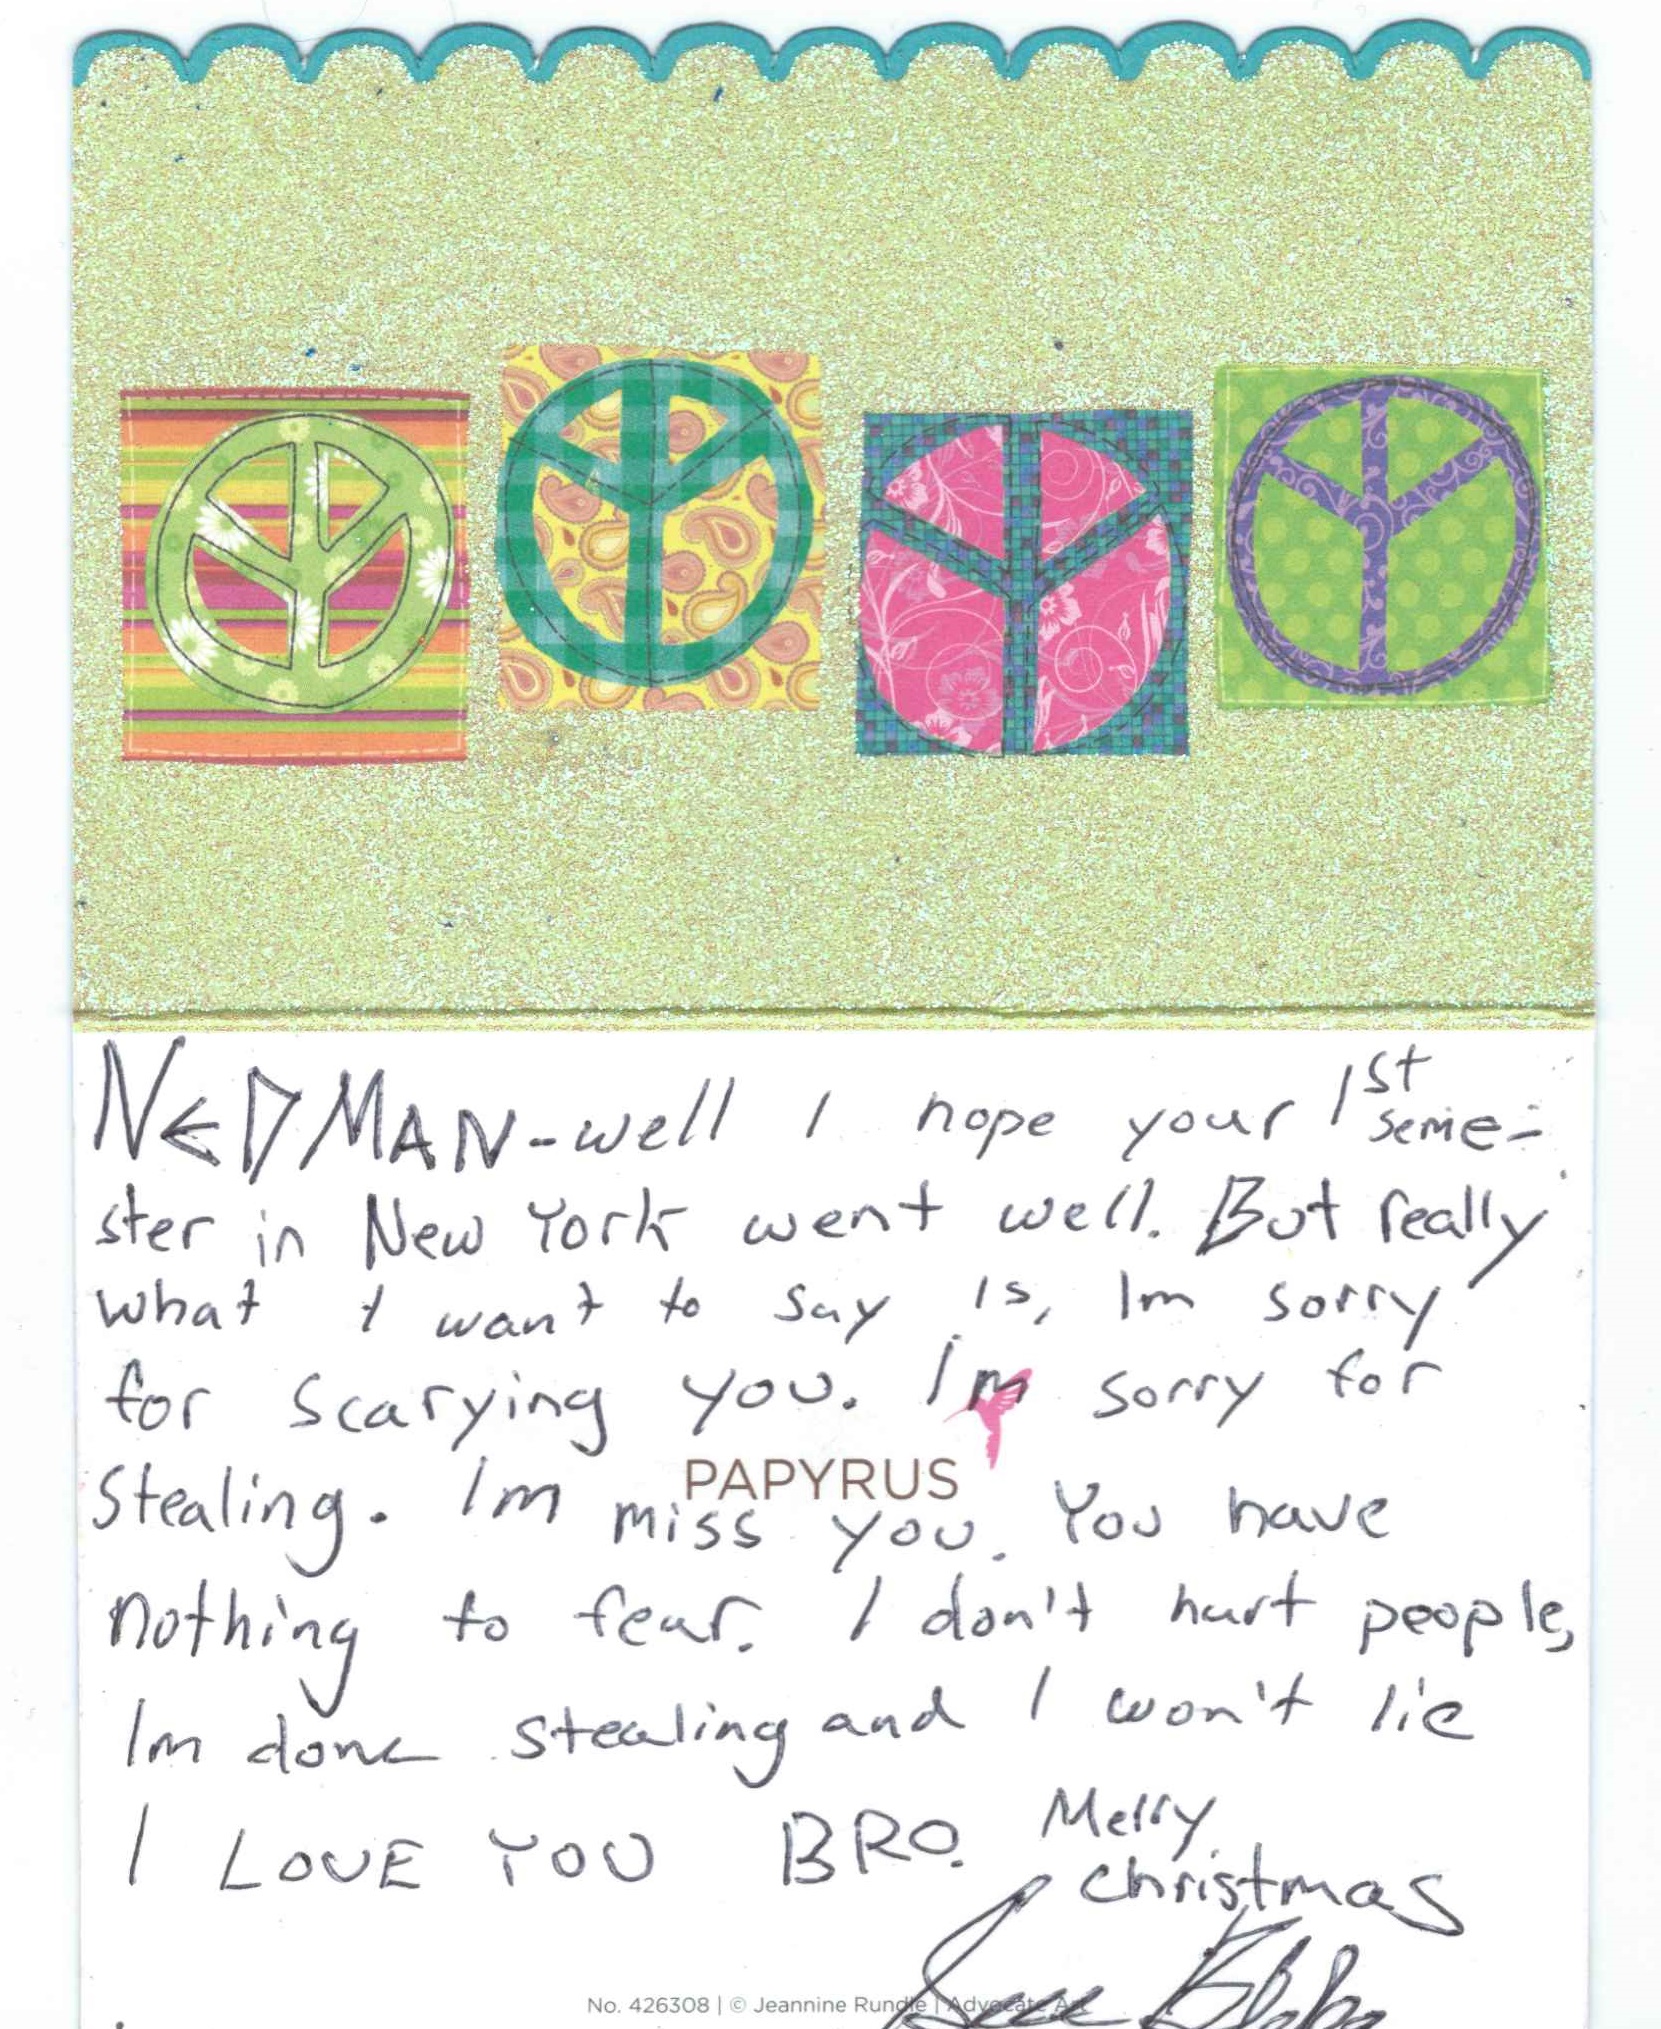 NEDMAN-well I hope your 1st seme-
ster in New York went well. But really
what I want to say is, Im sorry
for scarying you. Im sorry for
PAPYRUS
stealing. Im miss you. You have
nothing to fear. I don't hurt people,
Im done stealing and I won't lie
I LOVE YOU BRO. Merry
Christmas
No. 426308 | © Jeannine Rundle | Advocate Art